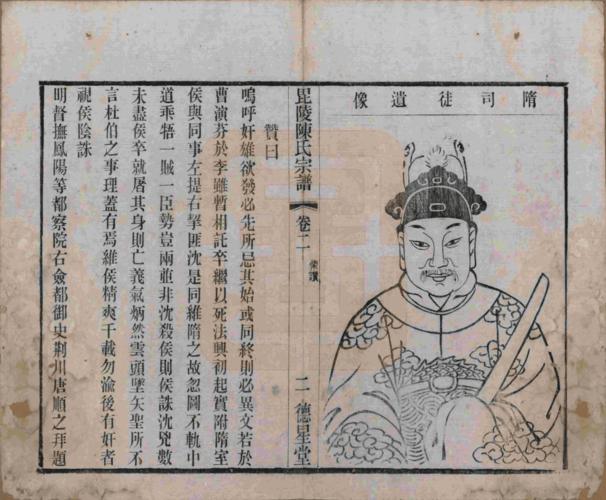 隋司徒遺像
毘陵陳氏宗譜
卷二
像贊
二
德星堂
贊曰
嗚呼奸雄欲發必先所忌其始或同終則必異文若於
曹演芬於李雖暫相託卒繼以死法興初起實附隋室
侯與同事左提右挈匪沈是同維隋之故忽圖不軌中
道乘牾一賊一臣勢豈兩並非沈殺侯則侯誅沈兇數
未盡侯卒就屠其身則亡義氣炳然雲頭墜矢聖所不
言杜伯之事理蓋有焉維侯精爽千載勿渝後有奸者
視侯陰誅
明督撫鳳陽等都察院右僉都御史荆川唐順之拜題